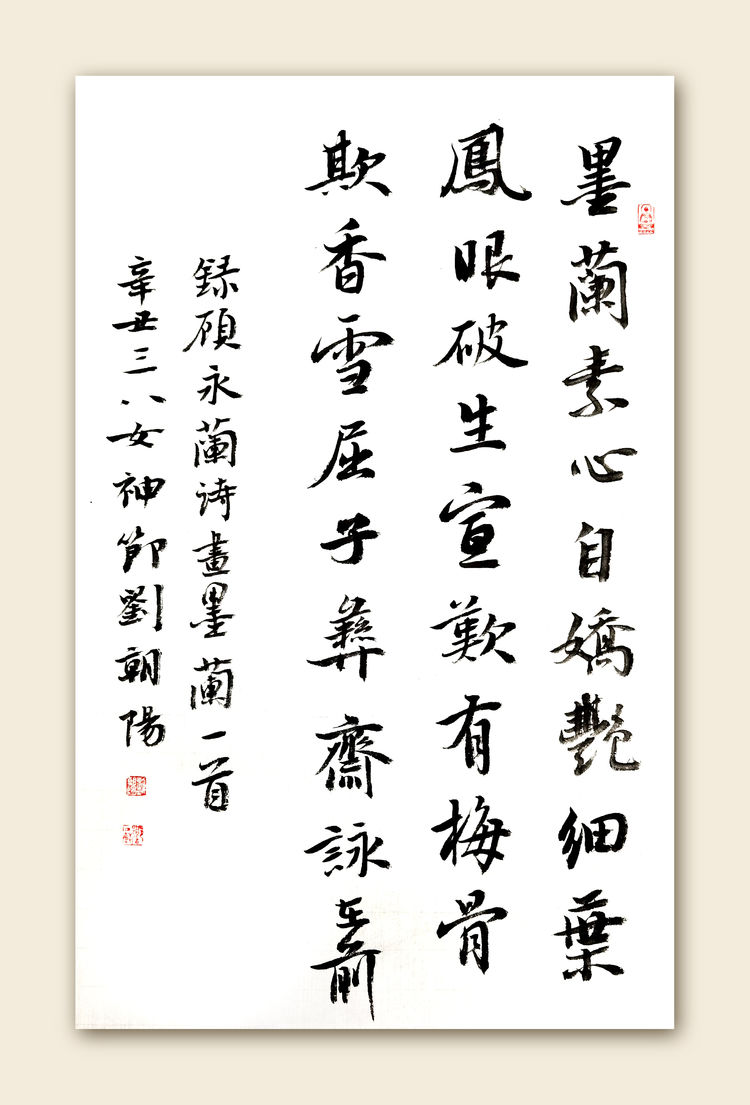 墨蘭素心自嬌艷細葉
鳳眼破生宣歎有梅骨
欺香雪屈子彝齋詠在前
録顾永蘭詩畫墨蘭一首
辛丑三八女神節劉朝陽